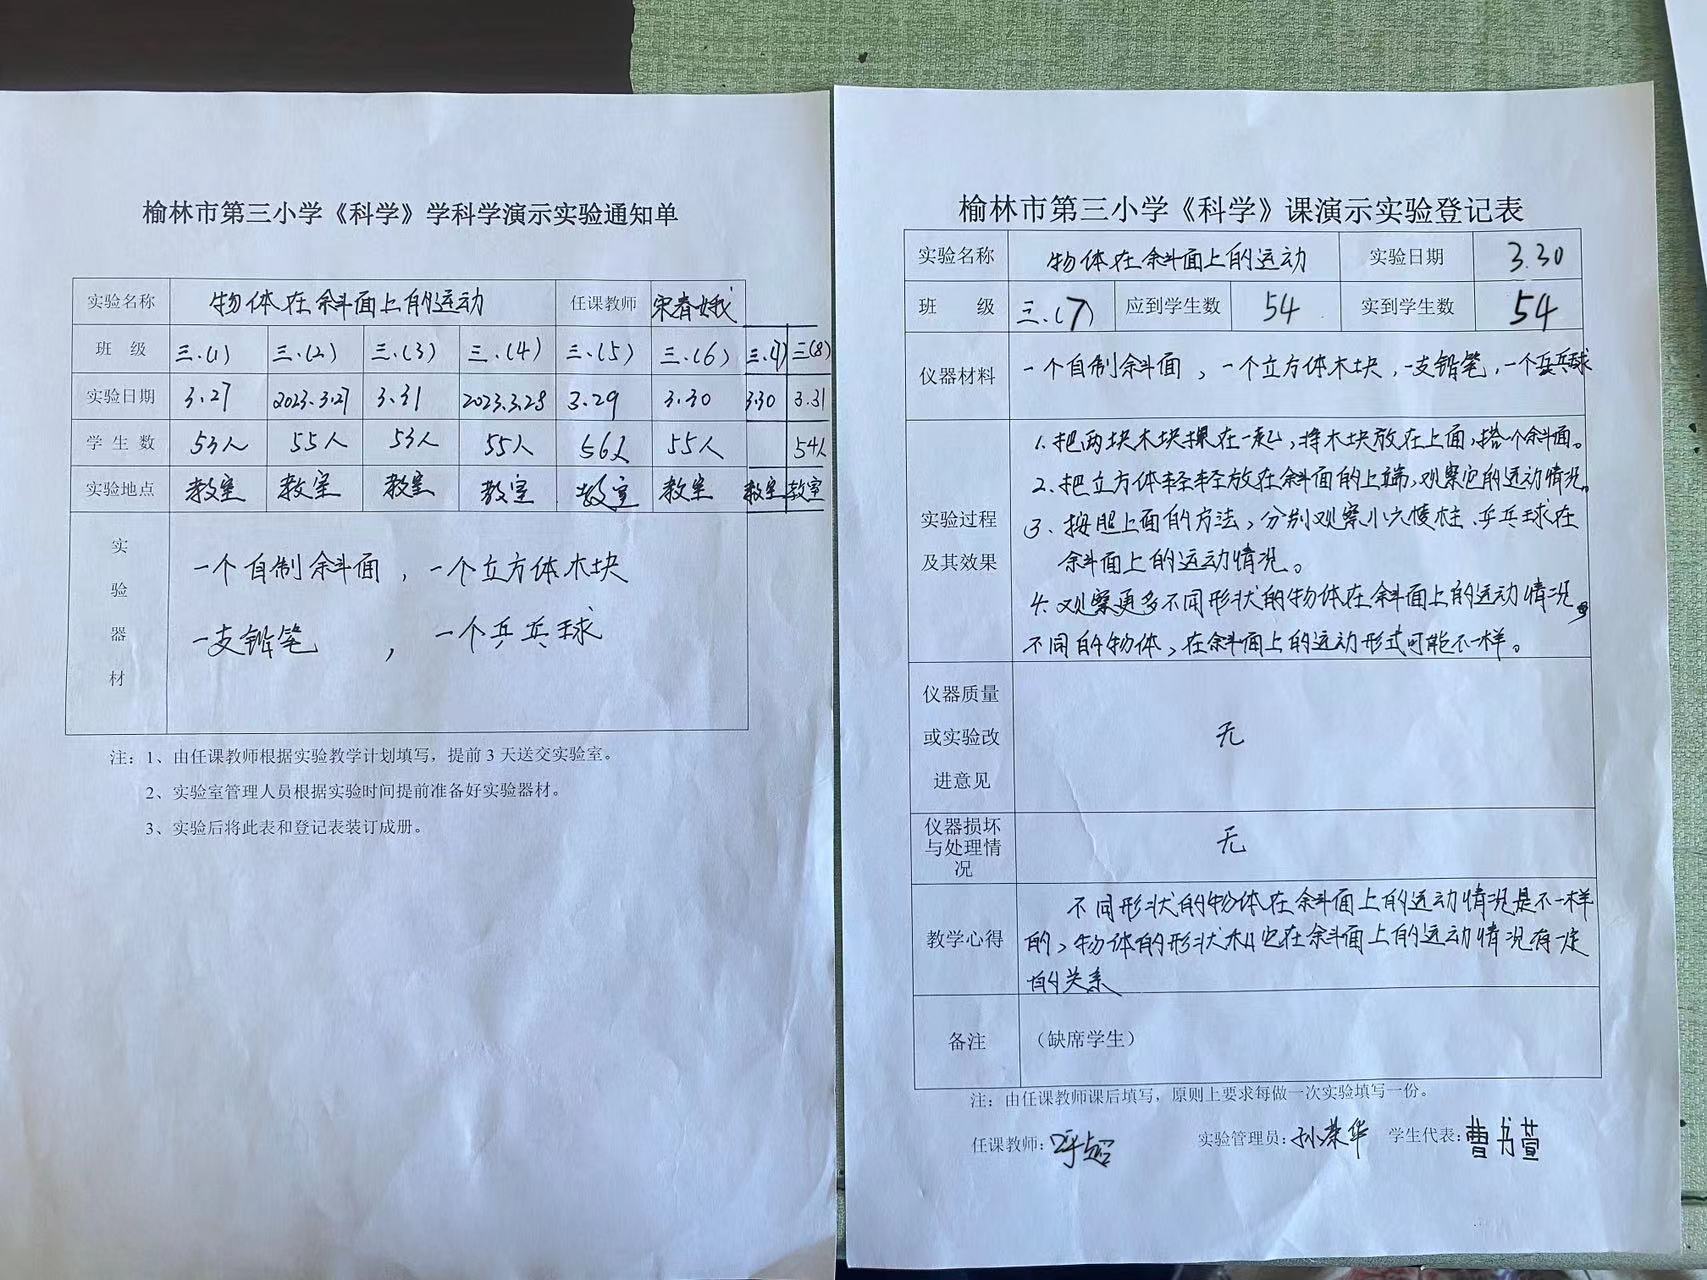 榆林市第三小学《科学》学科学演示实验通知单
实验名称 物体在斜面上的运动 任课教师 宋春娥
班 级 三.(1) 三.(2) 三.(3) 三.(4) 三.(5) 三.(6) 三.(7) 三(8)
实验日期 3.27 2023.3.27 3.31 2023.3.28 3.29 3.30 3.30 3.31
学 生 数 53人 55人 53人 55人 56人 55人 54人
实验地点 教室 教室 教室 教室 教室 教室 教室 教室
实验器材
一个自制斜面，一个立方体木块
一支铅笔，一个乒乓球
注：1、由任课教师根据实验教学计划填写，提前3天送交实验室。
2、实验室管理人员根据实验时间提前准备好实验器材。
3、实验后将此表和登记表装订成册。
榆林市第三小学《科学》课演示实验登记表
实验名称 物体在斜面上的运动 实验日期 3.30
班 级 三.(7) 应到学生数 54 实到学生数 54
仪器材料 一个自制斜面，一个立方体木块，一支铅笔，一个乒乓球
实验过程
及其效果
1. 把两块木块摞在一起，将木块放在上面，搭个斜面。
2. 把立方体轻轻放在斜面的上端，观察它的运动情况。
3、按照上面的方法，分别观察小六棱柱、乒乓球在
斜面上的运动情况。
4. 观察更多不同形状的物体在斜面上的运动情况。
不同的物体，在斜面上的运动形式可能不一样。
仪器质量
或实验改
进意见
无
仪器损坏
与处理情
况
无
教学心得
不同形状的物体在斜面上的运动情况是不一样
的，物体的形状和它在斜面上的运动情况有一定
的关系
备注 （缺席学生）
注：由任课教师课后填写，原则上要求每做一次实验填写一份。
任课教师：呼超 实验管理员：孙荣华 学生代表：曹书萱